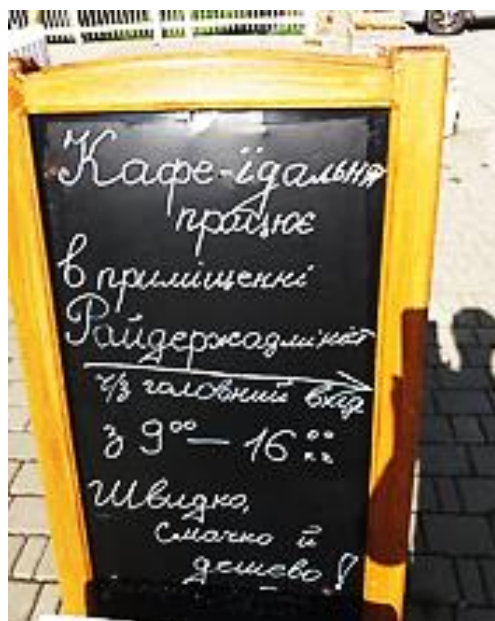 Кафе-їдальня
працює
в приміщенні
Райдержадмініст
ч/з головний вхід
з 9⁰⁰ — 16⁰⁰
Швидко,
смачно й
дешево!